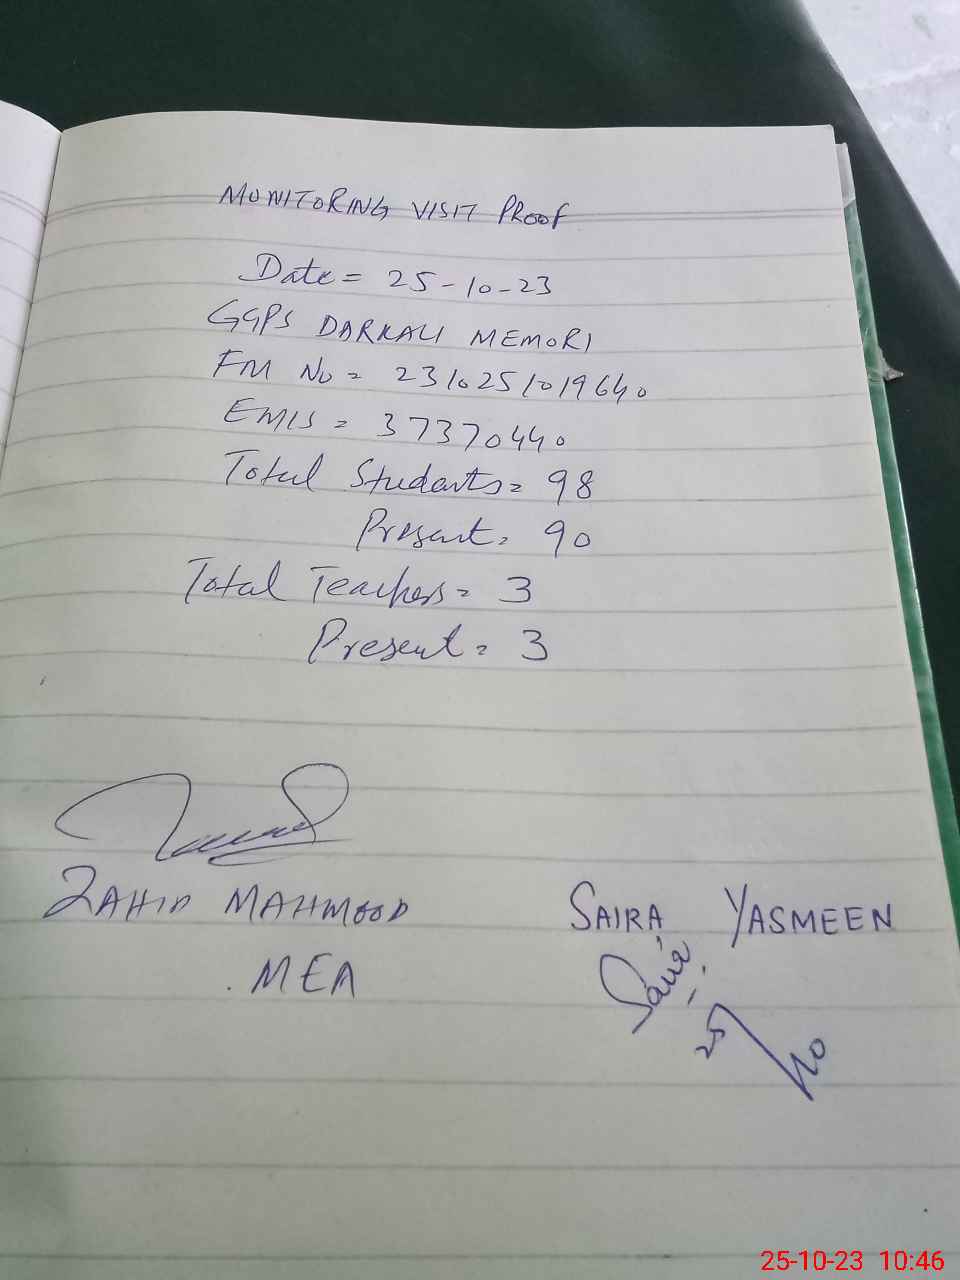 MONITORING VISIT PROOF
Date = 25-10-23
GGPS DARKALI MEMORI
FM No = 2310251019640
EMIS = 37370440
Total Students = 98
Present = 90
Total Teachers = 3
Present = 3
ZAHID MAHMOOD
MEA
SAIRA YASMEEN
Saira
25/10
25-10-23 10:46